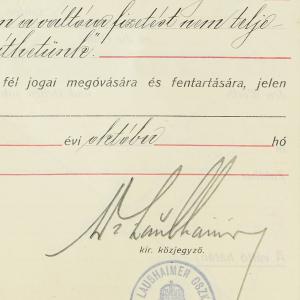 n a váltóra fizetést nem telje
íthetünk."
fél jogai megóvására és fentartására, jelen
évi október hó
Dr Laushaimer
kir. közjegyző.
LAUSHAIMER OSZK